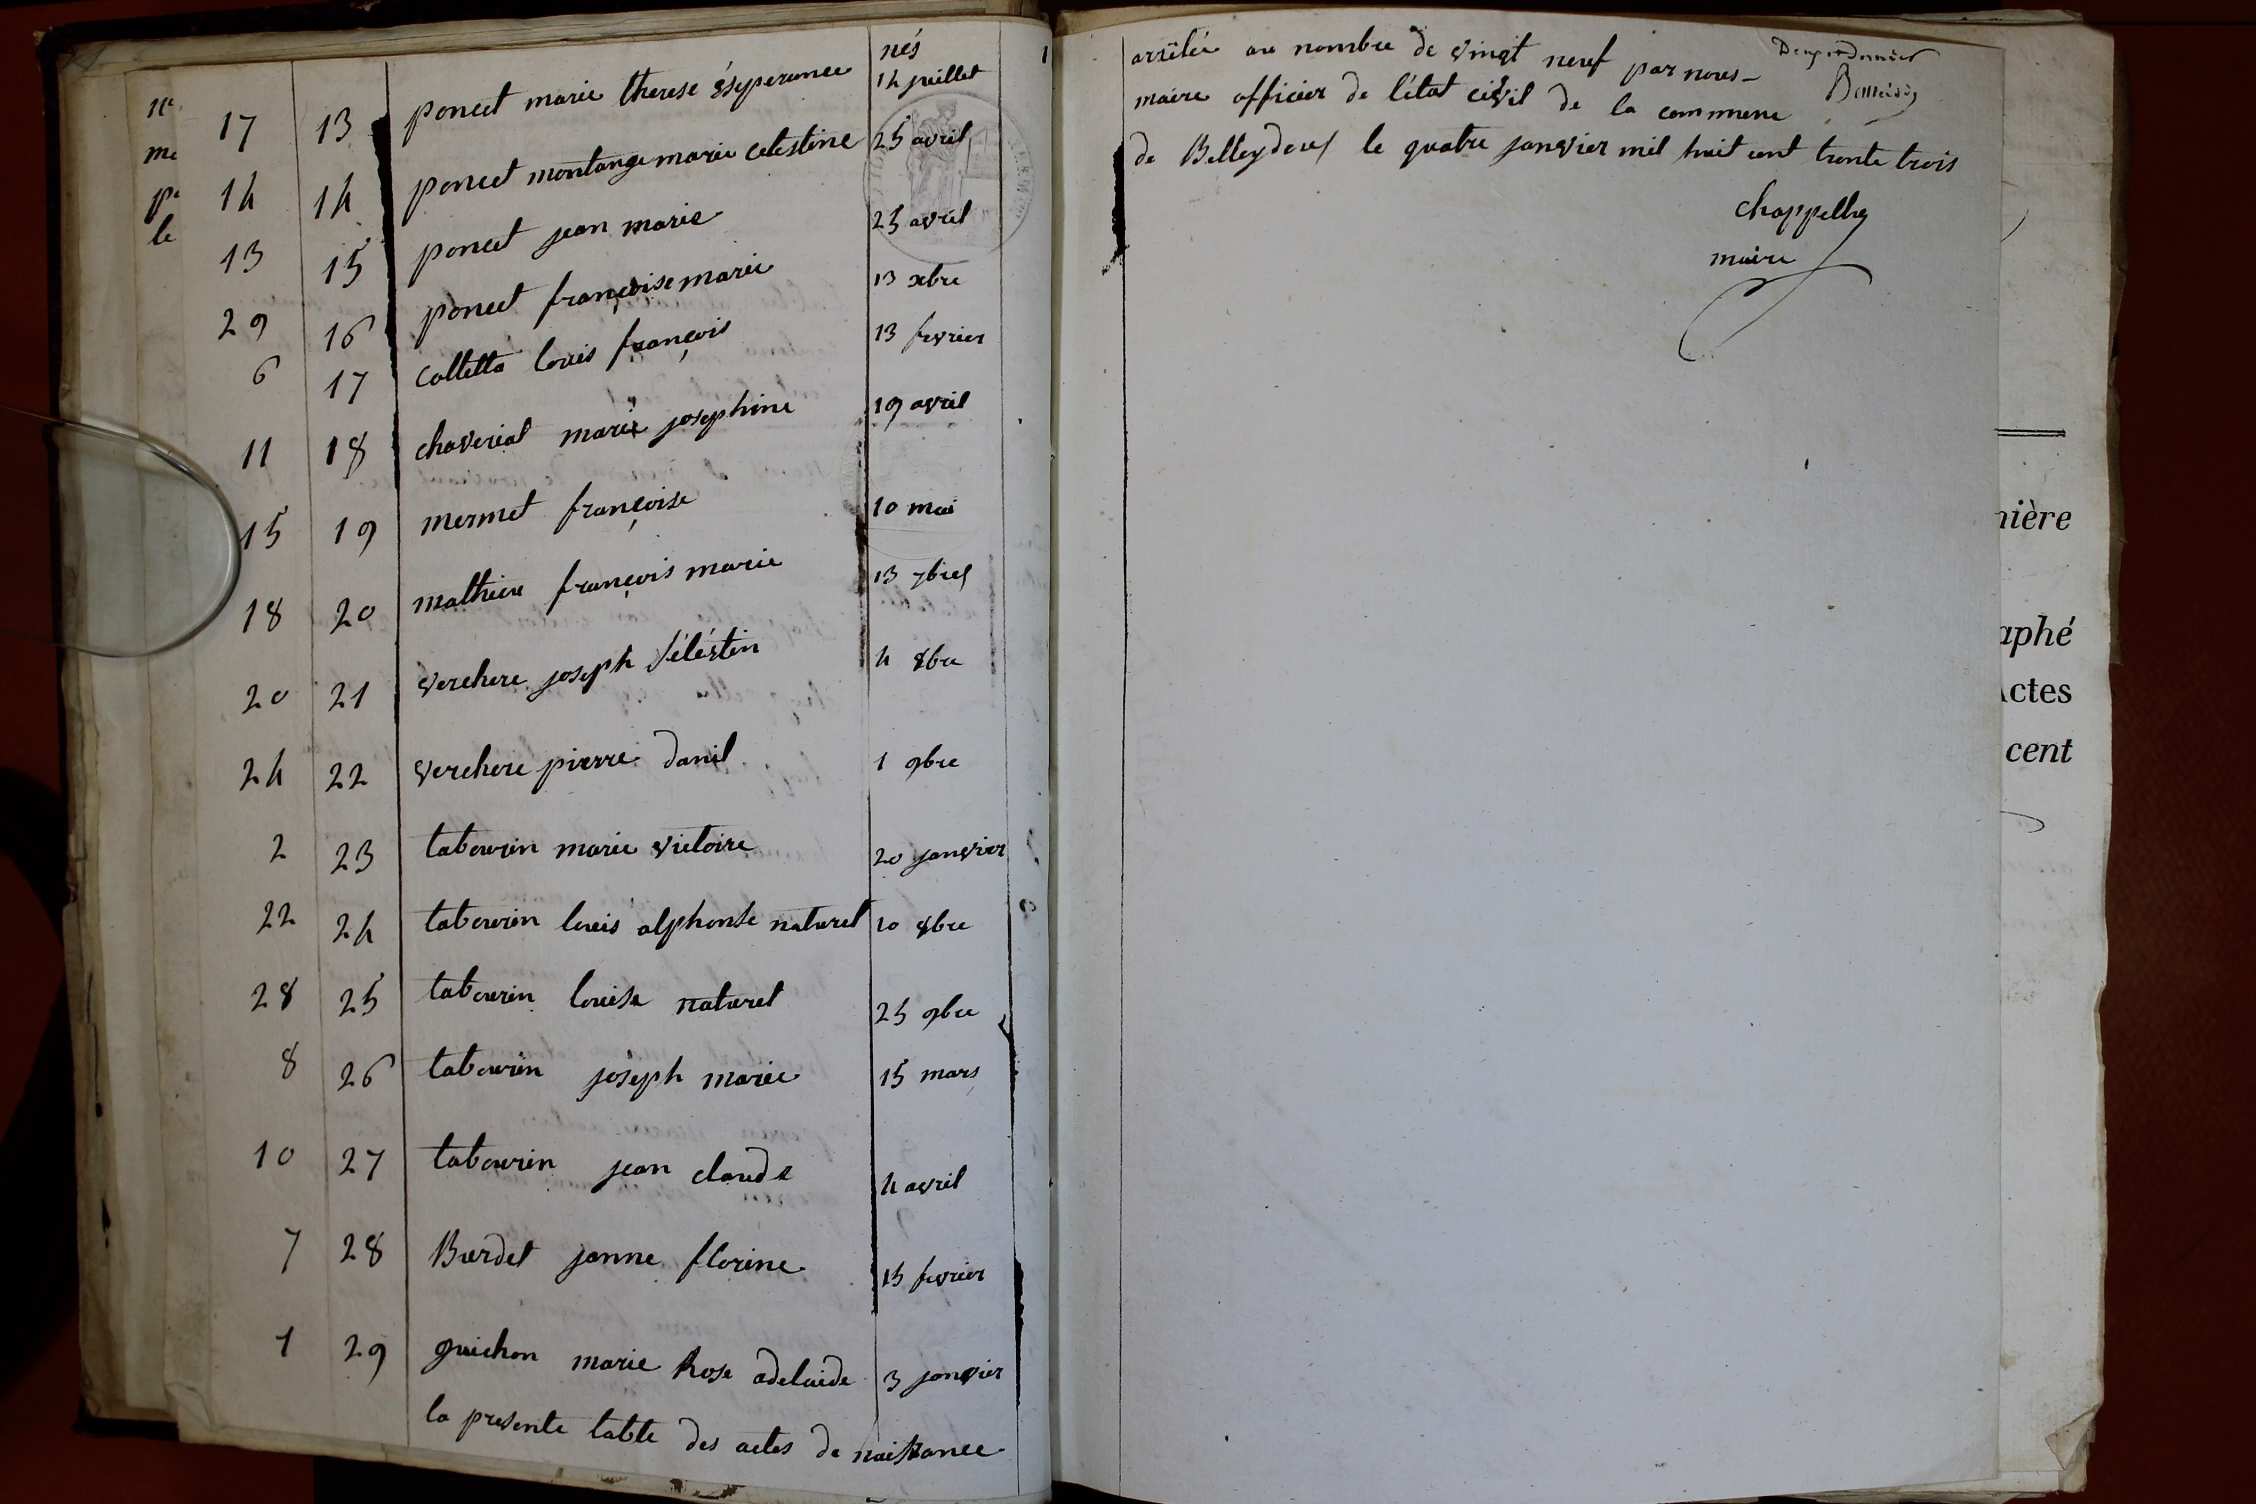 nés
17 13 poncet marie therese ésyperance 14 juillet
14 14 poncet montange marie celestine 25 avril
13 15 poncet jean marie 25 avril
29 16 poncet françoise marie 13 xbre
6 17 colletta louis françois 13 fevrier
11 18 chaverial marie josephine 19 avril
15 19 mermet françoise 10 mai
18 20 mathieu françois marie 13 7bre
20 21 verchere joseph séléstin 4 8bre
24 22 verchere pierre danil 1 9bre
2 23 tabourin marie victoire 20 janvier
22 24 tabourin louis alphonse naturel 10 8bre
28 25 tabourin louise naturel 25 9bre
8 26 tabourin joseph marie 15 mars
10 27 tabourin jean claude 4 avril
7 28 Burdet janne florine 15 fevrier
1 29 guichon marie Rose adelaide 3 janvier
la presente table des actes de naissance
me
le
arrêtée au nombre de vingt neuf par nous
maire officier de l'état civil de la commune
de Belleydoux le quatre janvier mil huit cent trente trois
chappellu
maire
nière
aphé
Actes
cent